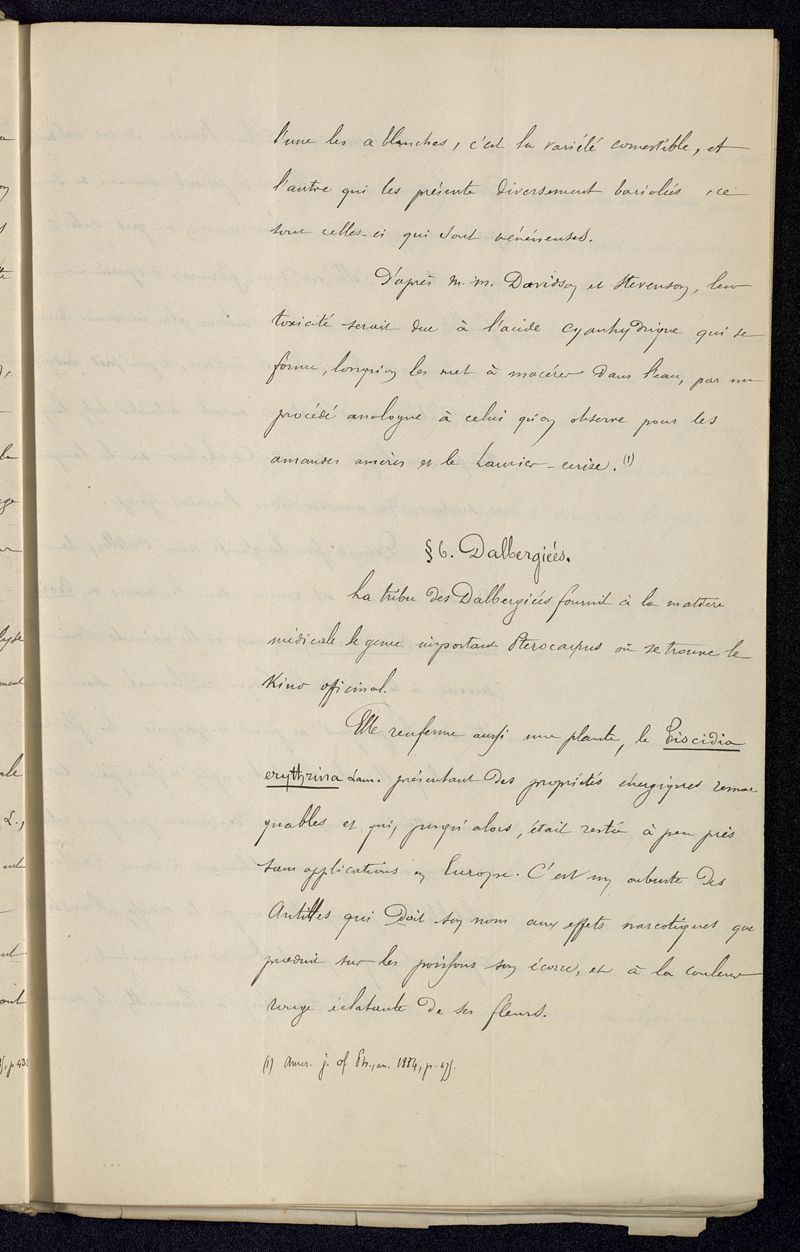 l'une les a blanches, c'est la variété comestible, et
l'autre qui les présente diversement bariolées, ce
sont celles-ci qui sont vénéneuses.
D'après M. M. Davidson et Stevenson, leur
toxicité serait due à l'acide cyanhydrique qui se
forme, lorsqu'on les met à macérer dans l'eau, par un
procédé analogue à celui qu'on observe pour les
amandes amères et le Laurier-cerise. (1)
§ 6. Dalbergiées.
La tribu des Dalbergiées fournit à la matière
médicale le genre important Pterocarpus où se trouve le
Kino officinal.
Elle renferme aussi une plante, le Piscidia
erythrina Lam. présentant des propriétés énergiques remar
quables et qui, jusqu'alors, était restée à peu près
sans applications en Europe. C'est un arbuste des
Antilles qui doit son nom aux effets narcotiques que
produit sur les poissons son écorce, et à la couleur
rouge éclatante de ses fleurs.
(1) Amer. j. of Ph., an. 1884, p.